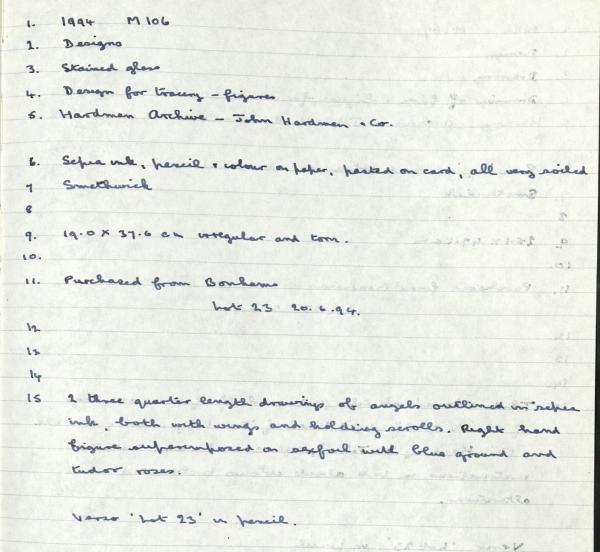 1. 1994 M 106
2. Designs
3. Stained glass
4. Design for tracery - figures
5. Hardman Archive - John Hardman & Co.
6. Sepia ink, pencil & colour on paper, pasted on card, all very soiled
7 Smethwick
8
9. 19.0 x 37.6 cm irregular and torn.
10.
11. Purchased from Bonhams
Lot 23 20.6.94.
12
13
14
15 2 three quarter length drawings of angels outlined in sepia
ink, both with wings and holding scrolls. Right hand
figure superimposed on sexfoil with blue ground and
tudor roses.
Verso 'Lot 23' in pencil.